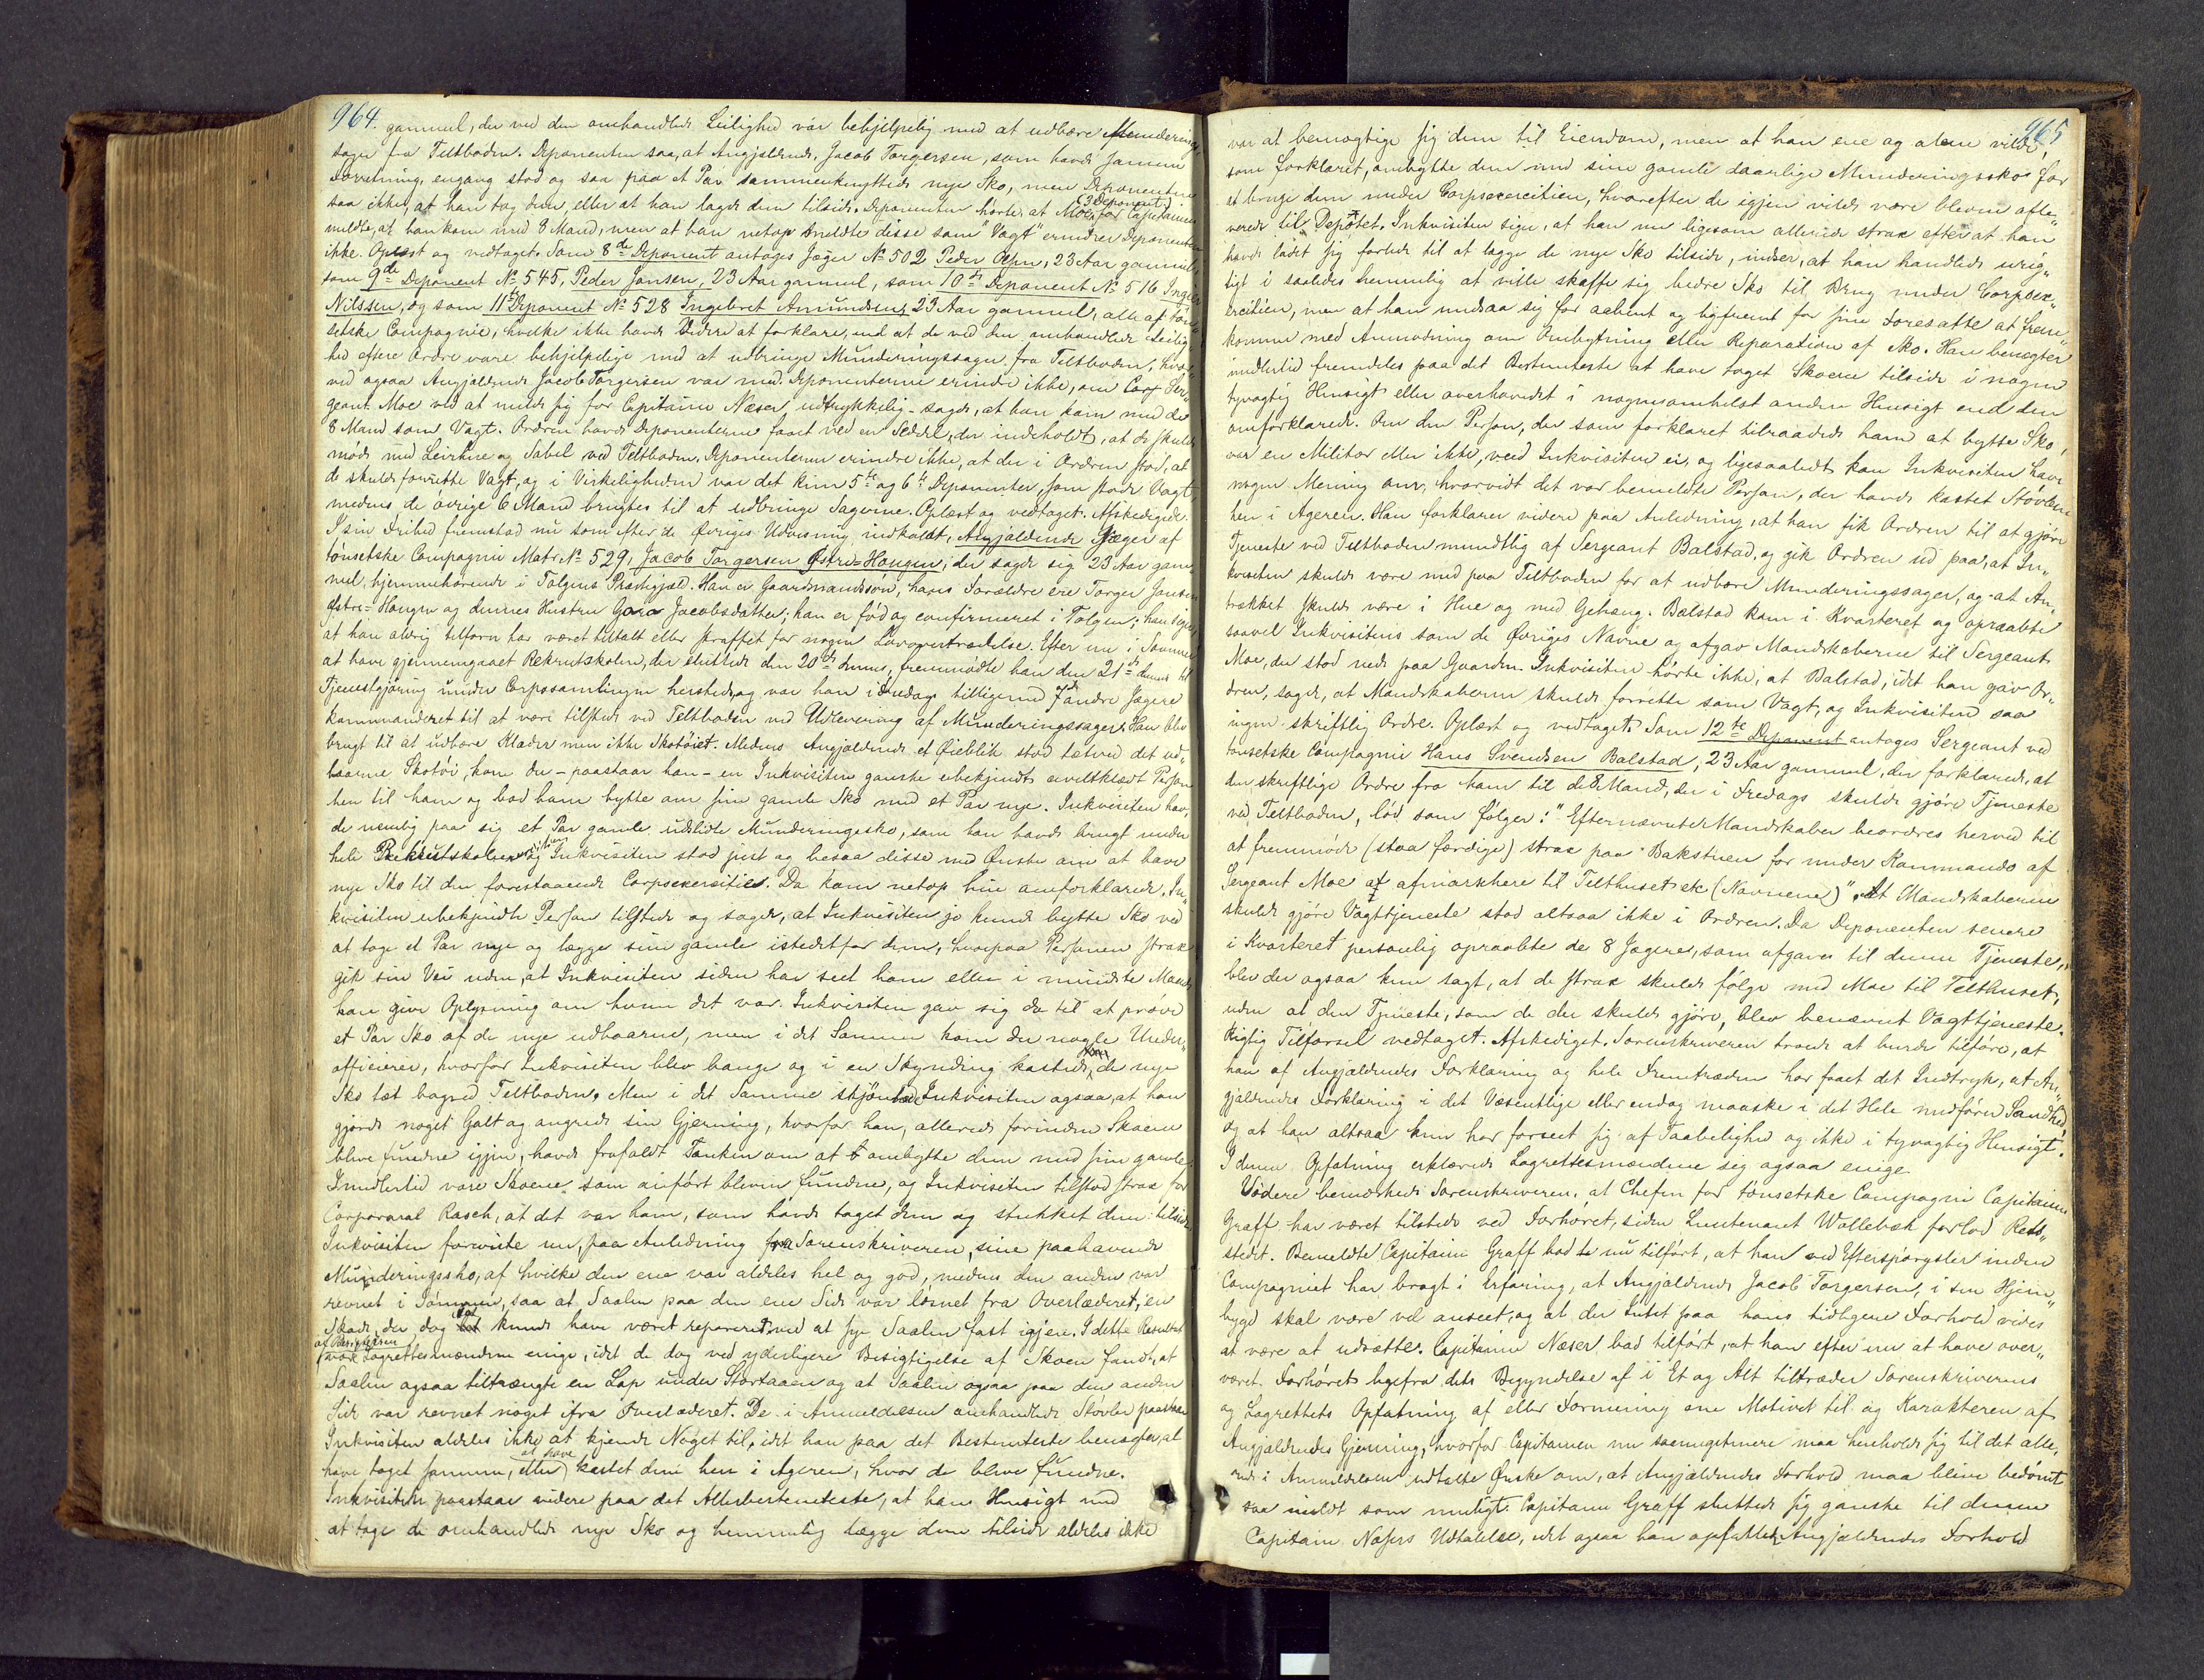 964.
gammel, der ved den omhandlede Leilighed var behjelpelig med at udbære Munderings„
sager fra Teltboden. Deponenten saa, at Angjældende, Jacob Torgersen, som havde samme
Forretning, engang stod og saa paa et Par sammenknyttede nye Sko, men Deponenten
saa ikke, at han tog dem, eller at han lagde dem tilside. Deponenten hørte, at Moe (3 Deponent) for Capitainen
meldte, at han kom med 8 Mand, men at han netop meldte disse som "Vagt" erindrer Deponenten
ikke. Oplæst og vedtaget. Som 8de Deponent antages Jæger No 502 Peder Aspn, 23 Aar gammel,
som 9de Deponent No 545, Peder Jansen, 23 Aar gammel, som 10de Deponent No 516 Ingebr
Nilssen, og som 11te Deponent No 528 Ingebret Amundsen, 23 Aar gammel, alle af Tøn„
setske Compagnie, hvilke ikke havde Videre at forklare, end at de ved den omhandlede Leilig„
hed efter Ordre vare behjelpelige med at udbringe Munderingssager fra Teltboden, hvor„
ved ogsaa Angjældende Jacob Torgersen var med. Deponenterne erindre ikke, om Ser„
geant Moe ved at melde sig for Capitaine Næser udtrykkelig sagde, at han kom med de
8 Mand som Vagt. Ordren havde Deponenterne faaet ved en Seddel, der indeholdt, at de skulde
møde med Leirhue og Sabel ved Teltboden. Deponenterne erindre ikke, at der i Ordren stod, at
de skulde forrette Vagt, og i Virkeligheden var det kun 5te og 6te Deponenter, som stode Vagt,
medens de øvrige 6 Mand brugtes til at udbringe Sagerne. Oplæst og vedtaget. Afskedigede.
I sin Frihed fremstod nu som efter de Øvriges Udvisning indkaldt, Angjældende Jæger af
tønsetske Compagnie Matr. No 529, Jacob Torgersen Østre-Hougen, der sagde sig 23 Aar gam„
mel, hjemmehørende i Tolgens Præstegjæld. Han er Gaardmandssøn, hans Forældre ere Torger Jansen
Østre-Hougen og dennes Hustru Goro Jacobsdatter; han er fød og confirmeret i Tolgen; han siger,
at han aldrig tilforn har været tiltalt eller straffet for nogen Lovovertrædelse. Efter nu i Sommer
at have gjennemgaaet Rekrutskolen, der sluttede den 20de dennes, fremmødte han den 21de dennes til
Tjenestgjøring under Corpssamlingen hersteds, og var han i Fredags tilligemed 7 andre Jægere
kommanderet til at være tilstede ved Teltboden ved Udlevering af Munderingssager. Han blev
brugt til at udbære Klæder men ikke Skotøiet. Medens Angjældende et Øieblik stod tætved det ud„
baarne Skotøi, kom der – paastaar han – en Inkvisiten ganske ubekjendt civilklædt Person
hen til ham og bad ham bytte om sine gamle Sko med et Par nye. Inkvisiten hav„
de nemlig paa sig et Par gamle udslidte Munderingssko, som han havde brugt under
hele Rekrutskolen og Inkvisiten stod just og besaa disse med Ønske om at have
nye Sko til den forestaaende Corpsexersitie. Da kom netop hin omforklarede, In„
kvisiten ubekjendte Person tilstede og sagde, at Inkvisiten jo kunde bytte Sko ved
at tage et Par nye og lægge sine gamle istedetfor dem, hvorpaa Personen strax
gik sin Vei uden, at Inkvisiten siden har seet ham eller i mindste Maade
kan give Oplysning om hvem det var. Inkvisiten gav sig da til at prøve
et Par Sko af de nye udbaarne, men i det Samme kom der nogle Under„
officierer, hvorfor Inkvisiten blev bange og i en Skynding kastede han de nye
Sko tæt bagved Teltboden. Men i det Samme skjønte Inkvisiten ogsaa, at han
gjorde noget Galt og angrede sin Gjerning, hvorfor han, allerede forinden Skoene
bleve fundne igjen, havde frafaldt Tanken om at ombytte dem med sine gamle.
Imidlertid vare Skoene som anført blevne fundne, og Inkvisiten tilstod strax for
Corporaral Rasch, at det var ham, som havde taget dem og stukket dem tilside.
Inkvisiten foreviste nu, paa Anledning fra Sorenskriveren, sine paahavende
Munderingssko, af hvilke den ene var aldeles hel og god, medens den anden var
revnet i Sømmen, saa at Saalen paa den ene Side var løsnet fra Overlæderet, en
Skade, der dog let kunde have været repareret ved at sye Saalen fast igjen. I dette Resultat
af Besigtelsen
vare Lagrettesmændene enige, idet de dog ved yderligere Besigtigelse af Skoen fandt, at
Saalen ogsaa tiltrængte en Lap under Stortaaen og at Saalen ogsaa paa den anden
Side var revnet noget ifra Overlæderet. De i Anmeldelsen omhandlede Støvler paastaar
Inkvisiten aldeles ikke at kjende Noget til, idet han paa det Bestemteste benægter, at
have taget samme, eller at have kastet dem hen i Ageren, hvor de bleve fundne.
Inkvisiten paastaar videre paa det Allerbestemteste, at hans Hensigt med
at tage de omhandlede nye Sko og hemmelig lægge dem tilside aldeles ikke
965
var at bemægtige sig dem til Eiendom, men at han ene og alene vilde,
som forklaret, ombytte dem med sine gamle daarlige Munderingssko for
at bruge dem under Corpsexercitien, hvorefter de igjen vilde være blevne afle„
verede til Depotet. Inkvisiten siger, at han nu ligesom allerede strax efter at han
havde ladet sig forlede til at lægge de nye Sko tilside, indser, at han handlede urig„
tigt i saaledes hemmelig at ville skaffe sig bedre Sko til Brug under Corpsex„
ercitien, men at han undsaa sig for aabent og ligefremt for sine Foresatte at frem„
komme med Anmodning om Ombytning eller Reparation af Sko. Han benægter
imidlertid fremdeles paa det Bestemteste at have taget Skoene tilside i nogen
tyvagtig Hensigt eller overhovedet i nogensomhelst anden Hensigt end den
omforklarede. Om den Person, der som forklaret tilraadede ham at bytte Sko,
var en Militær eller ikke, veed Inkvisiten ei, og ligesaalidt kan Inkvisiten have
nogen Mening om, hvorvidt det var bemeldte Person, der havde kastet Støvlerne
hen i Ageren. Han forklarer videre paa Anledning, at han fik Ordren til at gjøre
Tjeneste ved Teltboden mundtlig af Sergeant Balstad, og gik Ordren ud paa, at In„
kvisiten skulde være med paa Teltboden for at udbære Munderingssager, og at An„
trækket skulde være i Hue og med Gehæng. Balstad kom i Kvarteret og opraabte
saavel Inkvisitens som de Øvriges Navne og afgav Mandskaberne til Sergeant
Moe, der stod nede paa Gaarden. Inkvisiten hørte ikke, at Balstad, idet han gav Or„
dren, sagde, at Mandskaberne skulde forrette som Vagt, og Inkvisiten saa
ingen skriftlig Ordre. Oplæst og vedtaget. Som 12te Deponent antages Sergeant ved
tønsetske Compagnie Hans Svendsen Balstad, 23 Aar gammel, der forklarede, at
den skriftlige Ordre fra ham til de 8 Mand, der i Fredags skulde gjøre Tjeneste
ved Teltboden, lød som følger: "Efternævnte Mandskaber beordres herved til
at fremmøde (staa færdige) strax paa Bakstuen for under Kommando af
Sergeant Moe at afmarschere til Telthuset etc (Navnene)". At Mandskaberne
skulde gjøre Vagttjeneste stod altsaa ikke i Ordren. Da Deponenten senere
i Kvarteret personlig opraabte de 8 Jægere, som afgaves til denne Tjeneste,
blev der ogsaa kun sagt, at de strax skulde følge med Moe til Telthuset,
uden at den Tjeneste, som de der skulde gjøre, blev benævnt Vagttjeneste.
Rigtig Tilførsel vedtaget. Afskediget. Sorenskriveren troede at burde tilføre, at
han af Angjældendes Forklaring og hele Fremtræden har faaet det Indtryk, at An„
gjældendes Forklaring i det Væsentlige eller endog maaske i det Hele medfører Sandhed,
og at han altsaa kun har forseet sig af Taabelighed og ikke i tyvagtig Hensigt.
I denne Opfatning erklærede Lagrettesmændene sig ogsaa enige.
Videre bemærkede Sorenskriveren, at Chefen for tønsetske Compagni Capitaine
Graff har været tilstede ved Forhøret, siden Lieutenant Wollebæk forlod Rets„
stedet. Bemeldte Capitaine Graff bad nu tilført, at han ved Efterspørgsler inden
Compagniet har bragt i Erfaring, at Angjældende Jacob Torgersen, i sin Hjem„
bygd skal være vel anseet, og at der Intet paa hans tidligere Forhold vides
at være at udsætte. Capitaine Næser bad tilført, at han efter nu at have over„
været Forhøret ligefra dets Begyndelse af i Et og Alt tiltræder Sorenskriverens
og Lagrettets Opfatning af eller Formening om Motivet til og Karakteren af
Angjældendes Gjerning, hvorfor Capitainen nu saameget mere maa henholde sig til det alle„
rede i Anmeldelsen udtalte Ønske om, at Angjældendes Forhold maa blive bedømt
saa mildt som muligt. Capitaine Graff sluttede sig ganske til denne
Capitain Næsers Udtalelse, idet ogsaa han opfatter Angjældendes Forhold